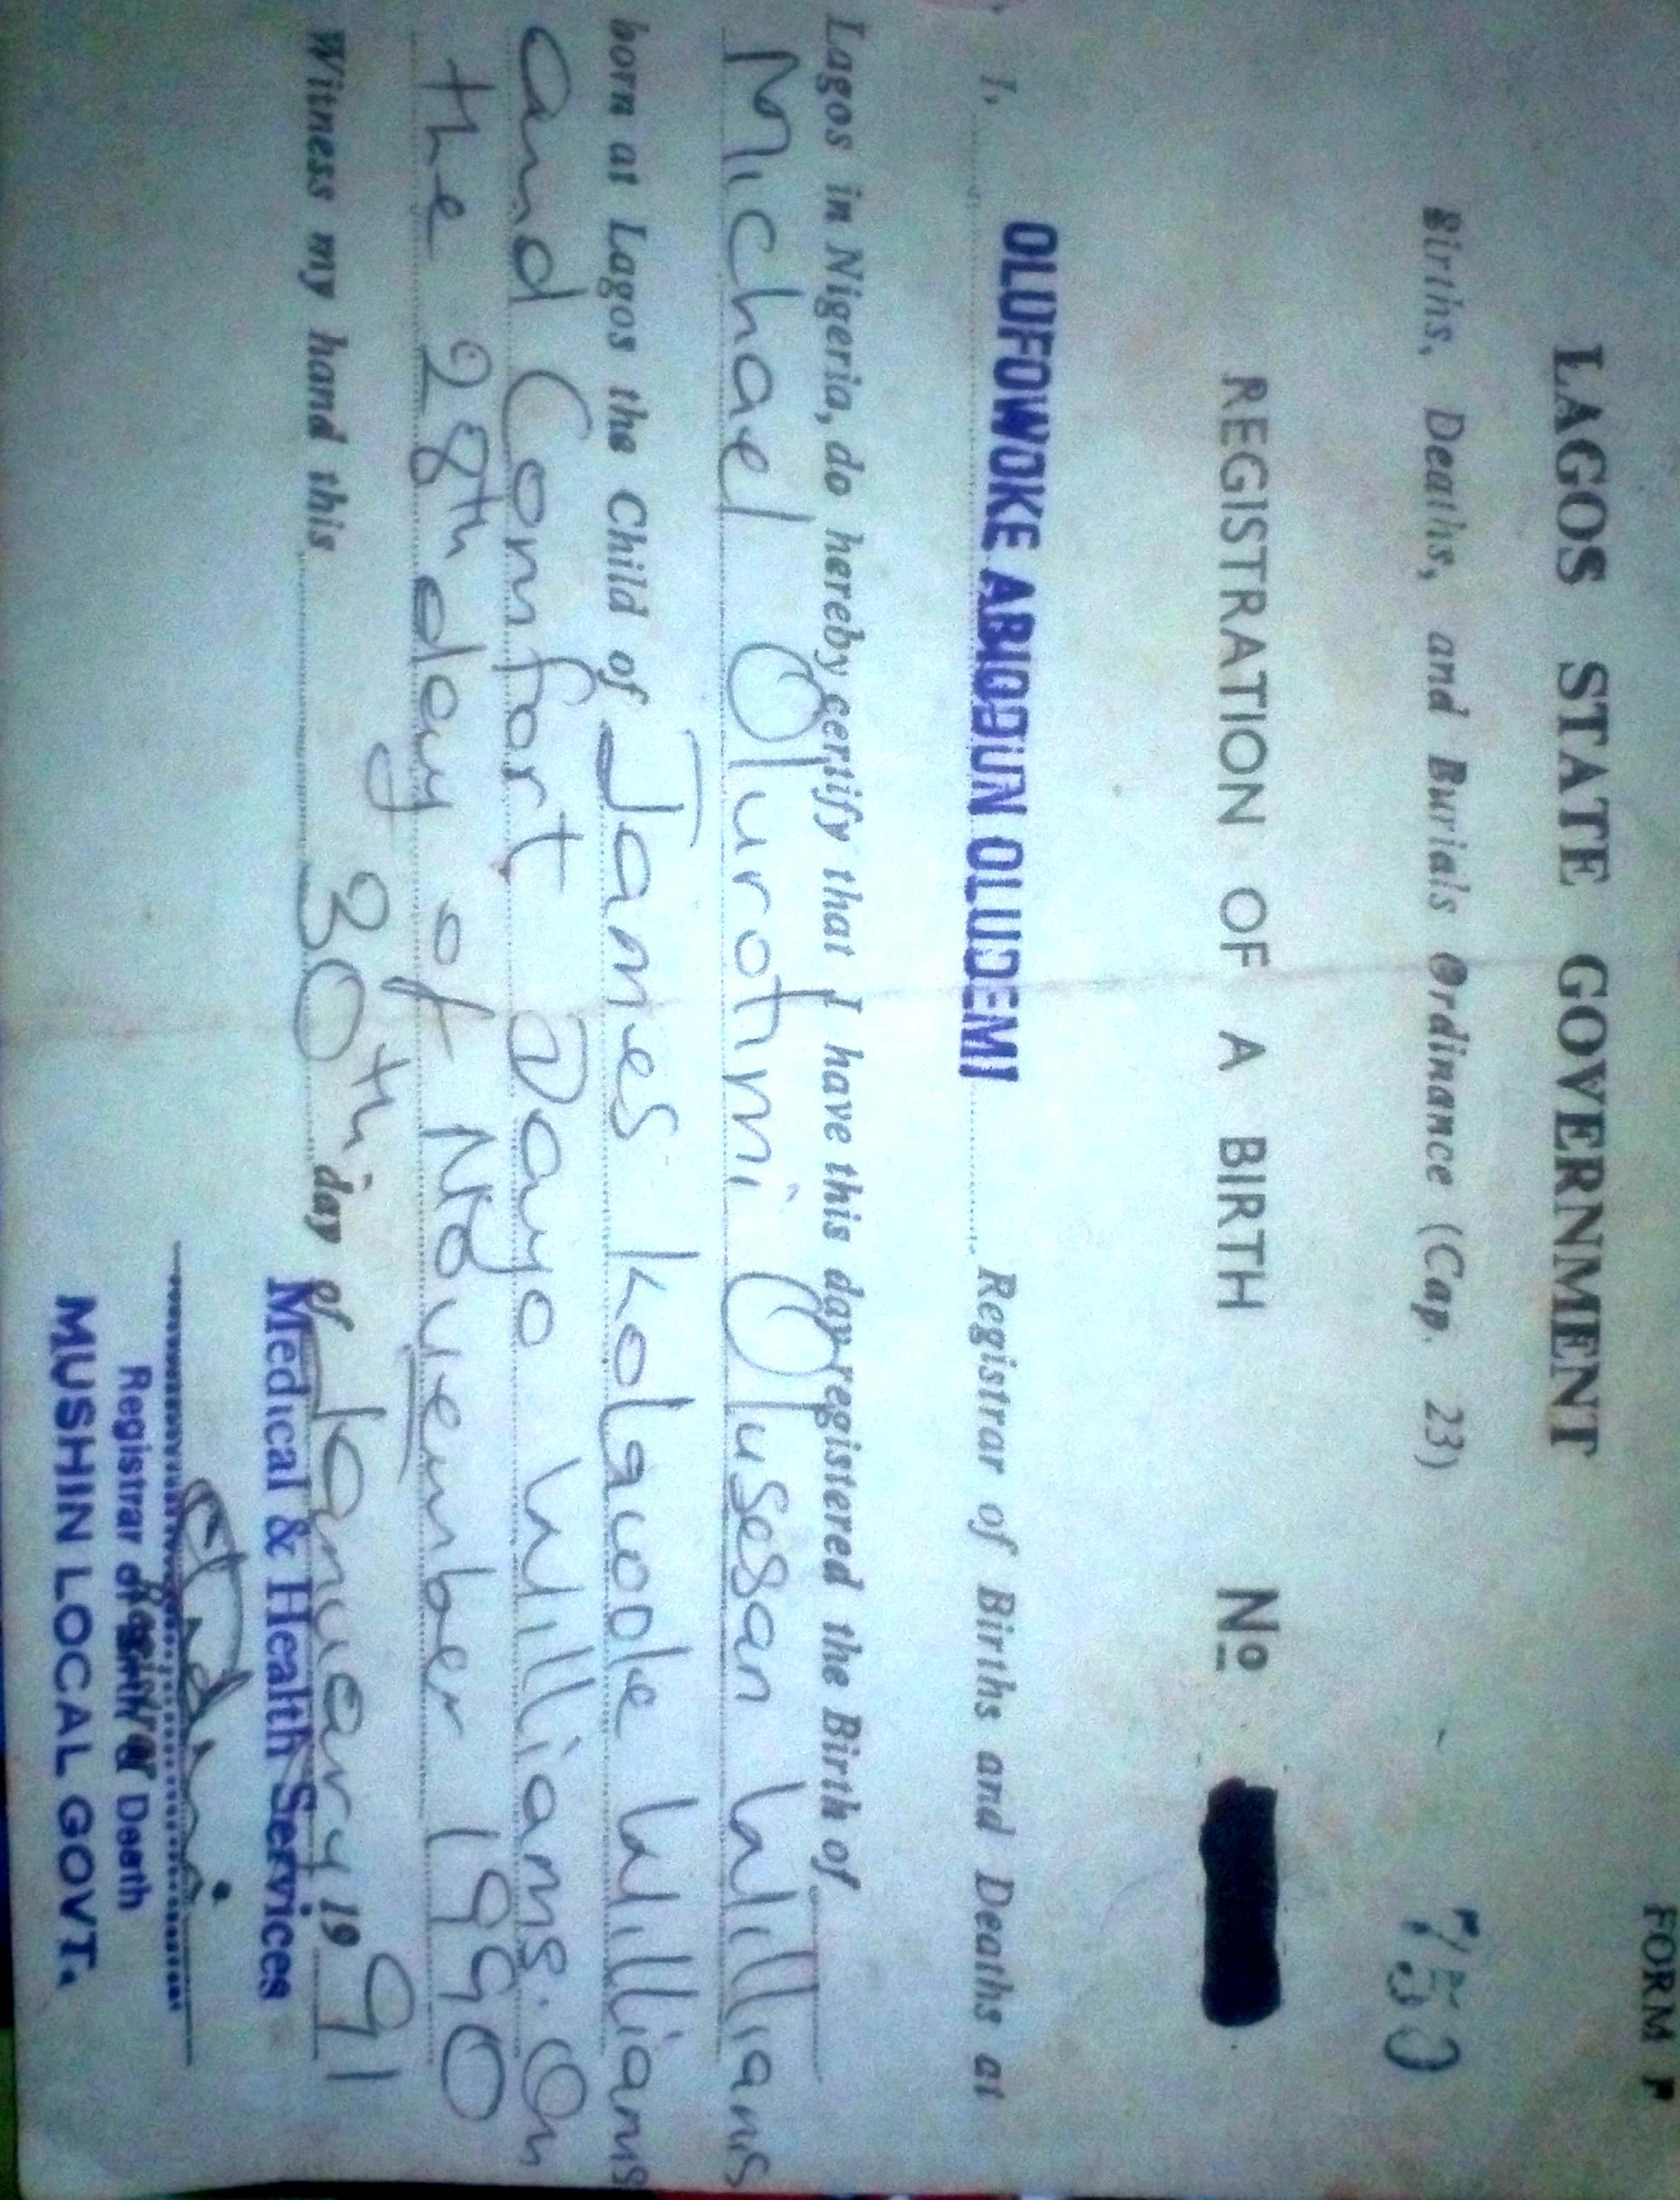 FORM
LAGOS STATE GOVERNMENT
Births, Deaths, and Burials Ordinance (Cap. 23)
REGISTRATION OF A BIRTH No
I, OLUFOWOKE ABIODUN OLUDEMI Registrar of Births and Deaths at
Lagos in Nigeria, do hereby certify that I have this day registered the Birth of
Michael Olurotimi Olusesan Williams
born at Lagos the Child of James Kolawole Williams
and Comfort Dayo Williams. On
the 28th day of November 1990
Witness my hand this 30th day of January 19 91
Medical & Health Services
Registrar of Birth & Death
MUSHIN LOCAL GOVT.